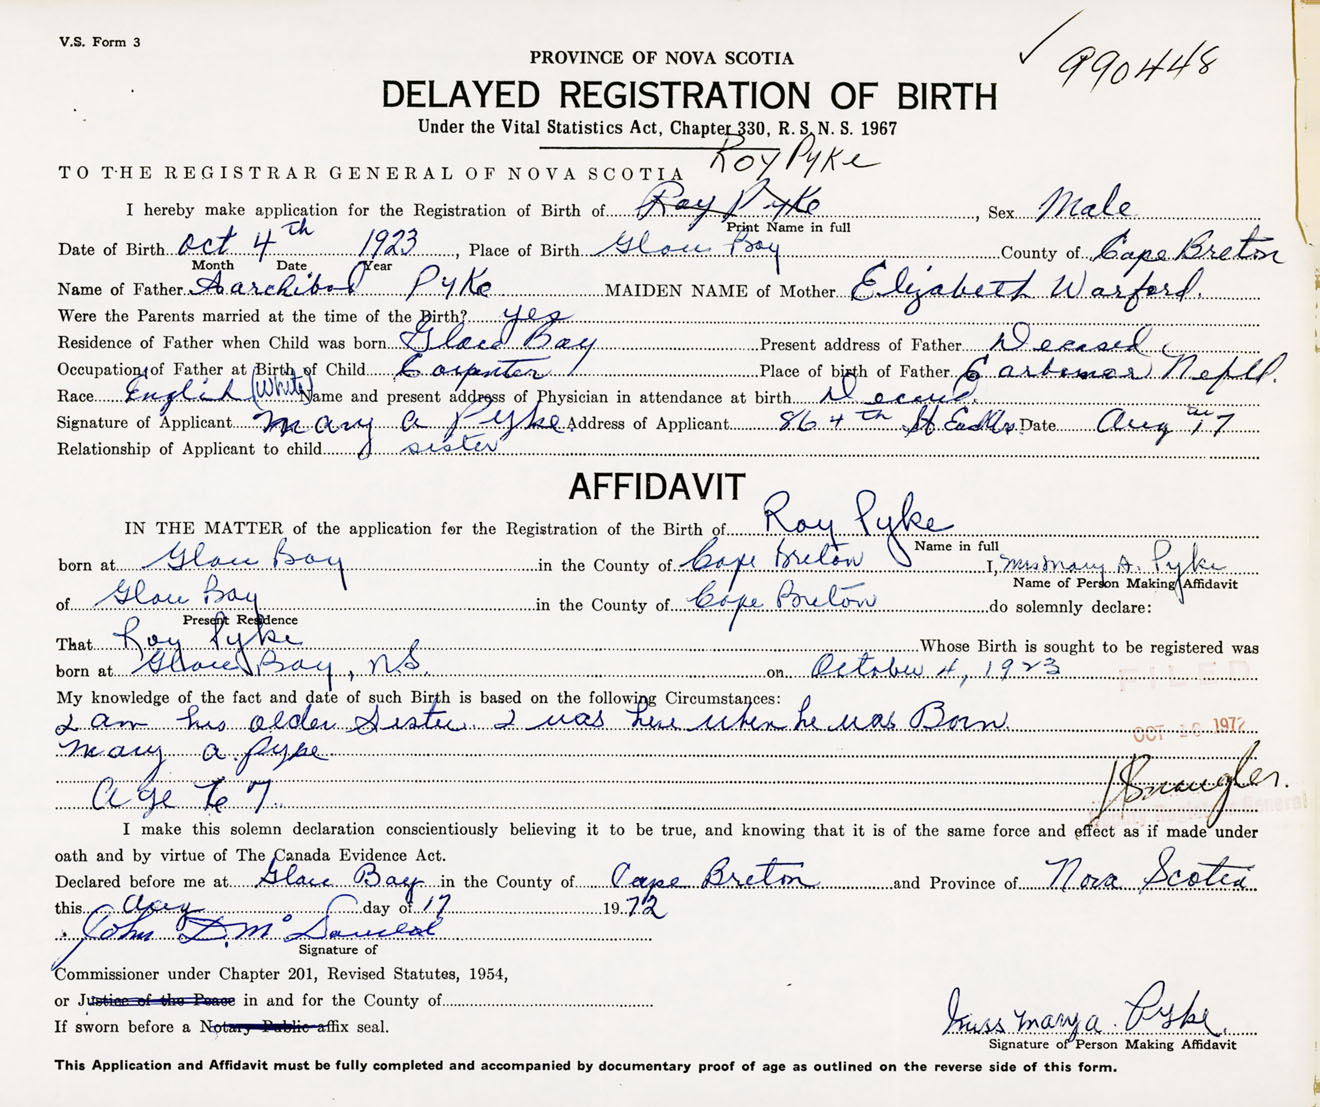 V.S. Form 3
990448
PROVINCE OF NOVA SCOTIA
DELAYED REGISTRATION OF BIRTH
Under the Vital Statistics Act, Chapter 330, R. S. N. S. 1967
Roy Pyke
TO THE REGISTRAR GENERAL OF NOVA SCOTIA
I hereby make application for the Registration of Birth of Roy Pyke, Sex Male
Print Name in full
Date of Birth Oct 4th 1923, Place of Birth Glace Bay County of Cape Breton
Month Date Year
Name of Father Aarchibod Pyke MAIDEN NAME of Mother Elizabeth Warford.
Were the Parents married at the time of the Birth? yes
Residence of Father when Child was born Glace Bay Present address of Father Decased
Occupation of Father at Birth of Child Carpenter Place of birth of Father Carbonear Nefld.
Race English (White) Name and present address of Physician in attendance at birth
Signature of Applicant Mary A Pyke Address of Applicant 86 4th St Date Aug 17
Relationship of Applicant to child sister
AFFIDAVIT
IN THE MATTER of the application for the Registration of the Birth of Roy Pyke
Name in full
born at Glace Bay in the County of Cape Breton I, Miss Mary A. Pyke
Name of Person Making Affidavit
of Glace Bay in the County of Cape Breton do solemnly declare:
Present Residence
That Roy Pyke Whose Birth is sought to be registered was
born at Glace Bay, N.S. on October 4, 1923
FILED
My knowledge of the fact and date of such Birth is based on the following Circumstances:
I am his older Sister. I was here when he was Born
OCT 16 1972
Mary A. Pyke
Age 67
I make this solemn declaration conscientiously believing it to be true, and knowing that it is of the same force and effect as if made under
oath and by virtue of The Canada Evidence Act.
Declared before me at Glace Bay in the County of Cape Breton and Province of Nova Scotia
this Aug day of 17 1972
John D. McDonald
Signature of
Commissioner under Chapter 201, Revised Statutes, 1954,
or Justice of the Peace in and for the County of
If sworn before a Notary Public affix seal.
Miss Mary A. Pyke.
Signature of Person Making Affidavit
This Application and Affidavit must be fully completed and accompanied by documentary proof of age as outlined on the reverse side of this form.